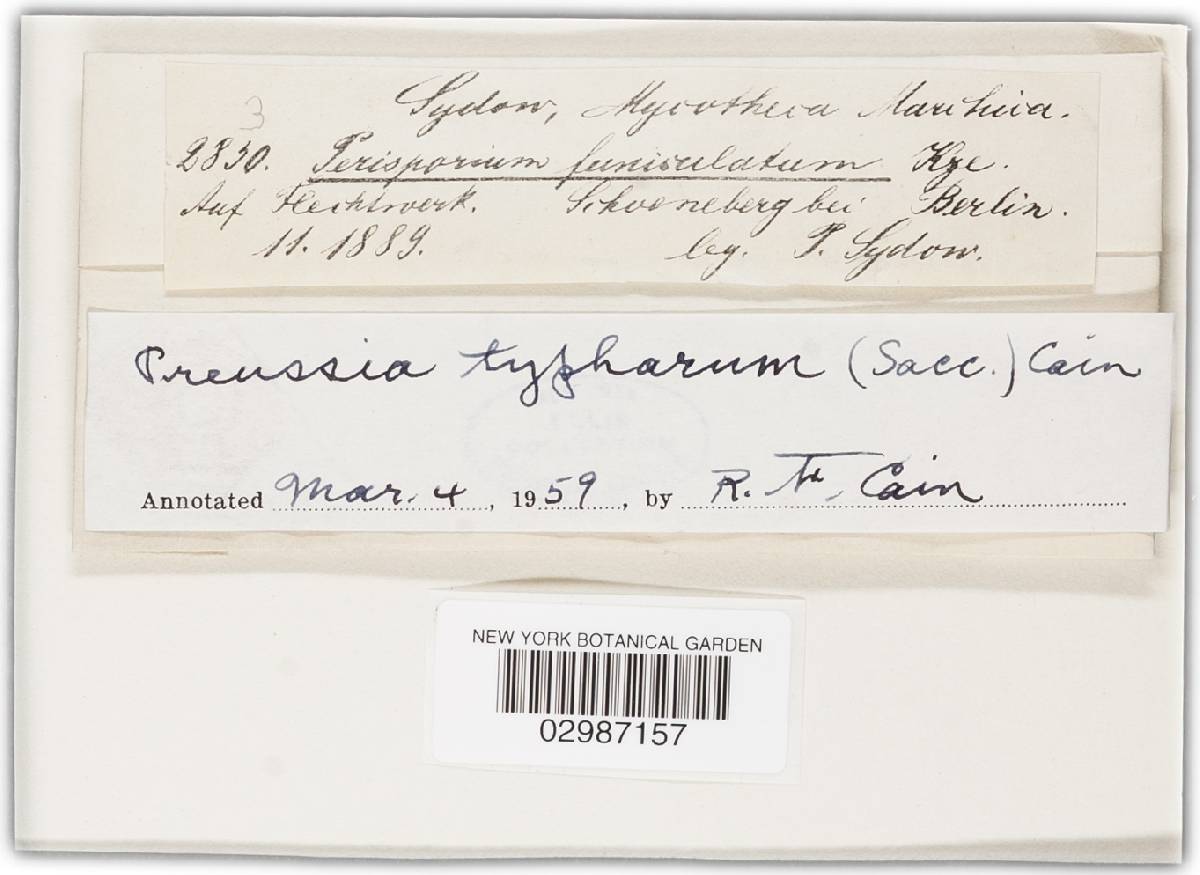 3
Sydow, Mycotheca Marchica.
2830. Perisporium funiculatum Kze.
Auf Flechtwerk. Schoeneberg bei Berlin.
11. 1889. leg. P. Sydow.
Preussia typharum (Sacc.) Cain
Annotated Mar. 4, 1959, by R. F. Cain
NEW YORK BOTANICAL GARDEN
02987157